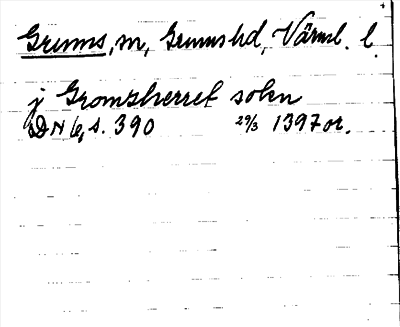 Grums, sn, Grums hd, Värml. l.
j Gromsherret sokn
DN 6, s. 390 29/3 1397 or.